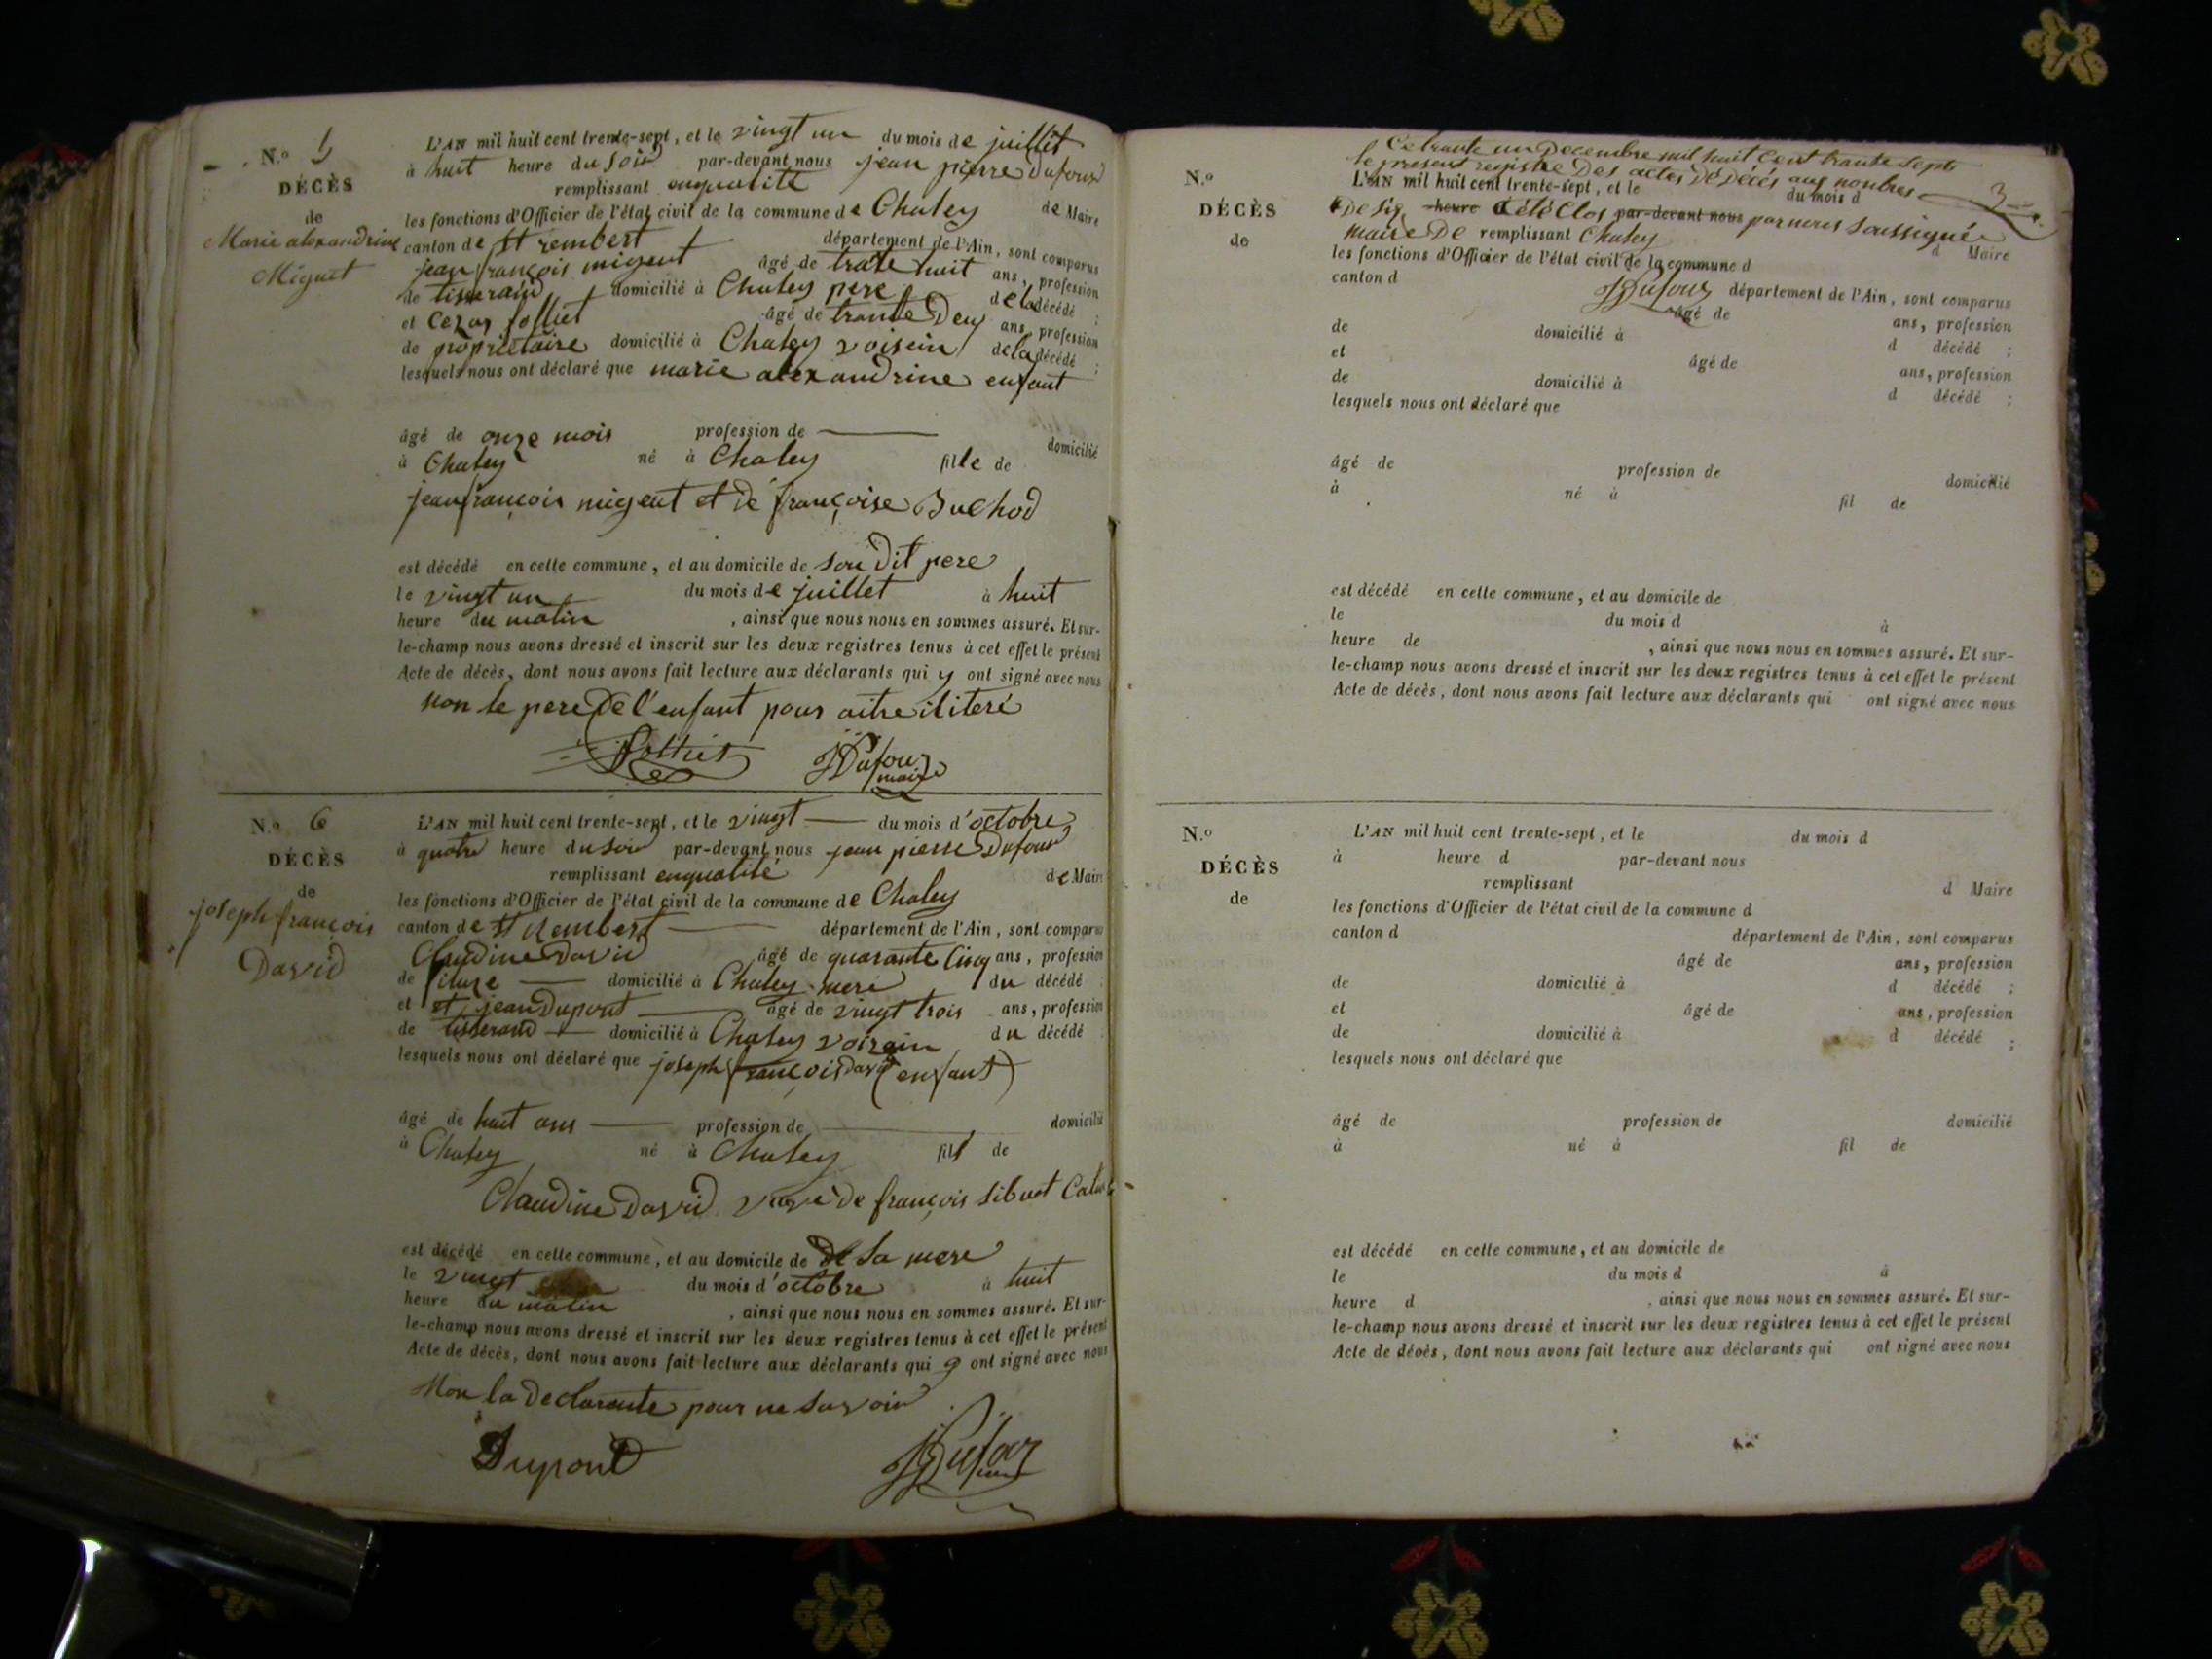 N.o 5
DÉCÈS
de
Marie alexandrine
Miguet
L'AN mil huit cent trente-sept, et le vingt un du mois de juillet
à huit heure du soir par-devant nous jean pierre Dufour
remplissant enqualité de Maire
les fonctions d'Officier de l'état civil de la commune de Chaley
canton de St rembert département de l'Ain, sont comparus
jean françois migeut âgé de trate huit ans, profession
de tisserand domicilié à Chaley pere de la décédé ;
et Cezar folliet âgé de trante Deux ans, profession
de propriétaire domicilié à Chaley voisein de la décédé ;
lesquels nous ont déclaré que marie alexandrine enfant
âgé de onze mois profession de domicilié
à Chaley né à Chaley fille de
jean françois migeut et de françoise Buchod
est décédé en cette commune, et au domicile de son Dit pere
le vingt un du mois de juillet à huit
heure du matin, ainsi que nous nous en sommes assuré. Et sur-
le-champ nous avons dressé et inscrit sur les deux registres tenus à cet effet le présent
Acte de décès, dont nous avons fait lecture aux déclarants qui y ont signé avec nous
non le pere De l'enfant pour aitre iliteré
JPDufour
maire
N.o 6
DÉCÈS
de
joseph françois
David
L'AN mil huit cent trente-sept, et le vingt du mois d'octobre
à quatre heure du soir par-devant nous jean pierre Dufour
remplissant enqualité de Maire
les fonctions d'Officier de l'état civil de la commune de Chaley
canton de St Rembert département de l'Ain, sont comparus
Claudine David âgé de quarante Cinq ans, profession
de domicilié à Chaley mere du décédé ;
et et jean Dupont âgé de vingt trois ans, profession
de tisserand domicilié à Chaley voizein du décédé
lesquels nous ont déclaré que joseph françois David (enfant)
âgé de huit ans profession de domicilié
à Chaley né à Chaley fils de
Claudine David veuve De françois Sibuet
est décédé en cette commune, et au domicile de De Sa mere
le vingt du mois d'octobre à huit
heure du matin, ainsi que nous nous en sommes assuré. Et sur-
le-champ nous avons dressé et inscrit sur les deux registres tenus à cet effet le présent
Acte de décès, dont nous avons fait lecture aux déclarants qui y ont signé avec nous
Non la Declarante pour ne Savoir
Dupont JPDufour
Ce trante un Decembre mil huit Cent trante Sept
le present registre Des actes De Décés aux nonbres
N.o
DÉCÈS
de
L'AN mil huit cent trente-sept, et le du mois d
De Six heure a été Clos par-devant nous par nous Soussigné
maire De remplissant Chaley d Maire
les fonctions d'Officier de l'état civil de la commune d
canton d JPDufour département de l'Ain, sont comparus
âgé de ans, profession
de domicilié à d décédé ;
et âgé de ans, profession
de domicilié à d décédé ;
lesquels nous ont déclaré que
âgé de profession de domicilié
à né à fil de
est décédé en cette commune, et au domicile de
le du mois d à
heure de , ainsi que nous nous en sommes assuré. Et sur-
le-champ nous avons dressé et inscrit sur les deux registres tenus à cet effet le présent
Acte de décès, dont nous avons fait lecture aux déclarants qui ont signé avec nous
N.o
DÉCÈS
de
L'AN mil huit cent trente-sept, et le du mois d
à heure d par-devant nous
remplissant d Maire
les fonctions d'Officier de l'état civil de la commune d
canton d département de l'Ain, sont comparus
âgé de ans, profession
de domicilié à d décédé ;
et âgé de ans, profession
de domicilié à d décédé ;
lesquels nous ont déclaré que
âgé de profession de domicilié
à né à fil de
est décédé en cette commune, et au domicile de
le du mois d à
heure d , ainsi que nous nous en sommes assuré. Et sur-
le-champ nous avons dressé et inscrit sur les deux registres tenus à cet effet le présent
Acte de décès, dont nous avons fait lecture aux déclarants qui ont signé avec nous